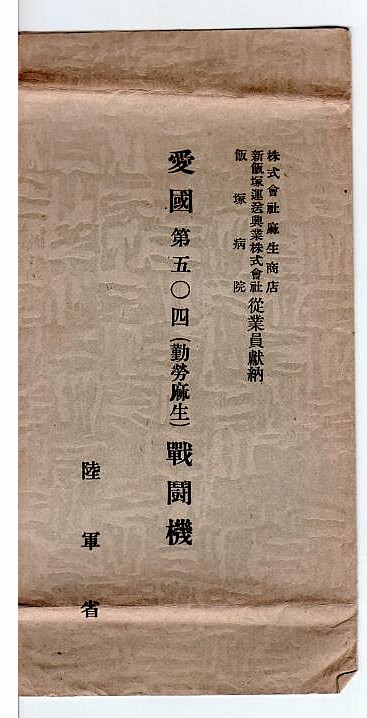 株式會社麻生商店
新飯塚運送興業株式會社
飯塚病院
從業員獻納
愛國第五〇四(勤勞麻生)戰鬪機
陸軍省